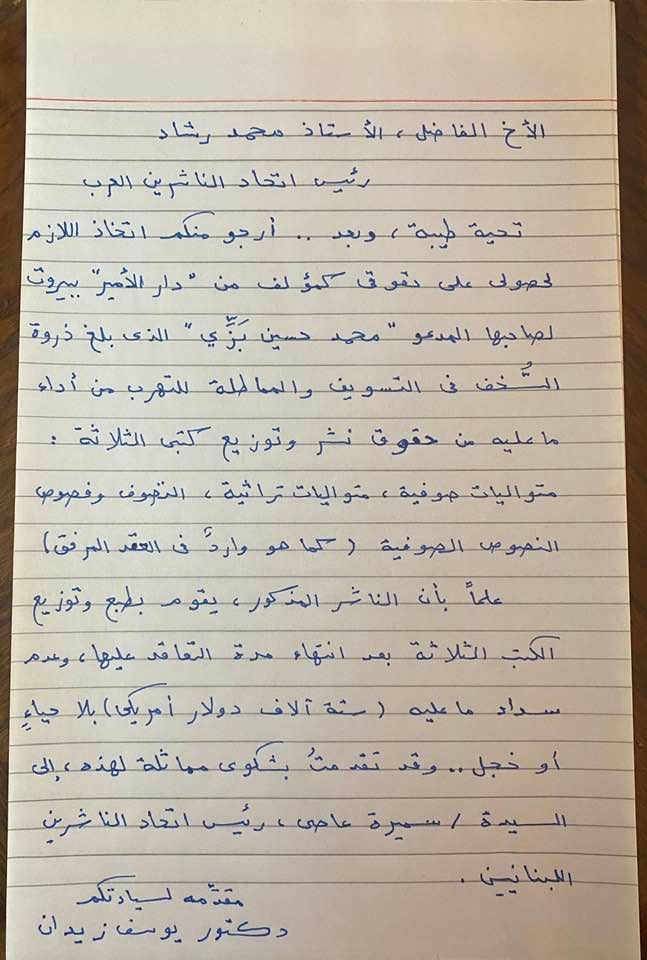 الأخ الفاضل، الأستاذ محمد رشاد
رئيس اتحاد الناشرين العرب
تحية طيبة، وبعد .. أرجو منكم اتخاذ اللازم
لحصولى على حقوقى كمؤلف من "دار الأمير" ببيروت
لصاحبها المدعو "محمد حسين بَزِّي" الذى بلغ ذروة
السُّخف فى التسويف والمماطلة للتهرب من أداء
ما عليه من حقوق نشر وتوزيع كتبى الثلاثة :
متواليات صوفية، متواليات تراثية، التصوف وفصوص
النصوص الصوفية (كما هو واردٌ فى العقد المرفق)
علماً بأن الناشر المذكور، يقوم بطبع وتوزيع
الكتب الثلاثة بعد انتهاء مدة التعاقد عليها، وعدم
سداد ما عليه (ستة آلاف دولار أمريكى) بلا حياءٍ
أو خجل .. وقد تقدمتُ بشكوى مماثلة لهذه، إلى
السيدة / سميرة عاصى، رئيس اتحاد الناشرين
اللبنانيين .
مقدِّمه لسيادتكم
دكتور يوسف زيدان